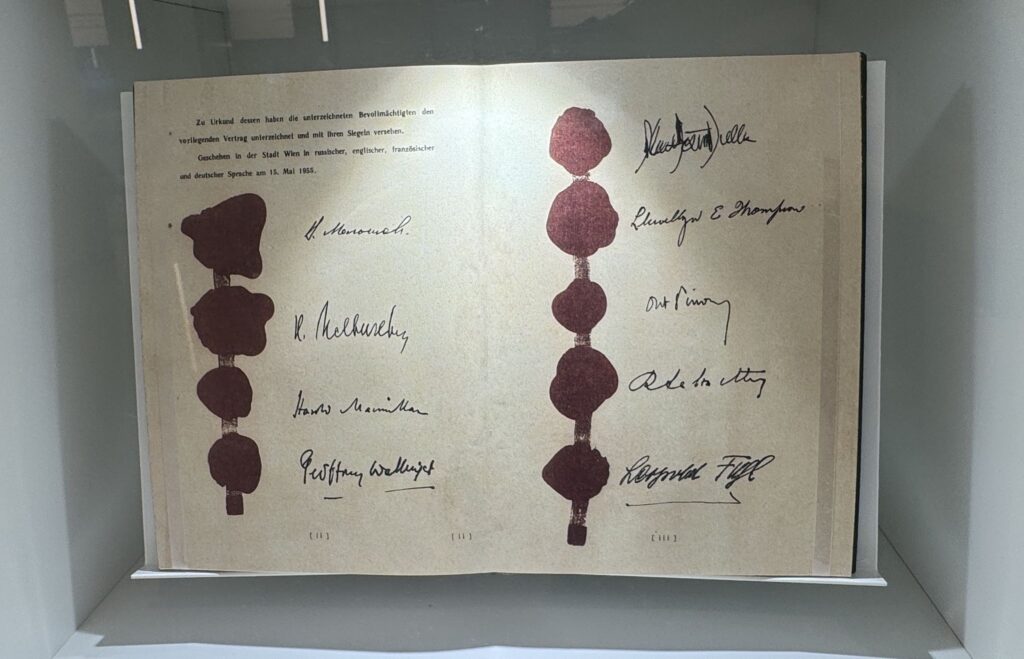 Zu Urkund dessen haben die unterzeichneten Bevollmächtigten den
vorliegenden Vertrag unterzeichnet und mit ihren Siegeln versehen.
Geschehen in der Stadt Wien in russischer, englischer, französischer
und deutscher Sprache am 15. Mai 1955.
Harold Macmillan
Geoffrey Wallinger
[ii]
[ii]
Llewellyn E Thompson
Ant Pinay
Leopold Figl
[iii]